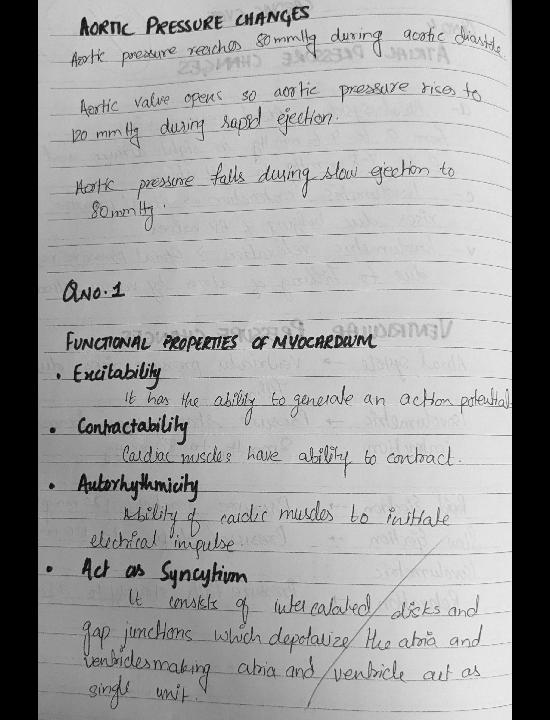 AORTIC PRESSURE CHANGES
Aortic pressure reaches 80mmHg during aortic diastole.
Aortic valve opens so aortic pressure rises to
120 mm Hg during rapid ejection.
Aortic pressure falls during slow ejection to
80mmHg.
QNO.1
FUNCTIONAL PROPERTIES OF MYOCARDIUM
• Excitability
It has the ability to generate an action potential
• Contractability
Cardiac muscles have ability to contract.
• Autorhythmicity
Ability of cardic muscles to initiate
electrical impulse
• Act as Syncytium
It consists of intercalated disks and
gap junctions which depolarize the atria and
ventricles making atria and ventricle act as
single unit.